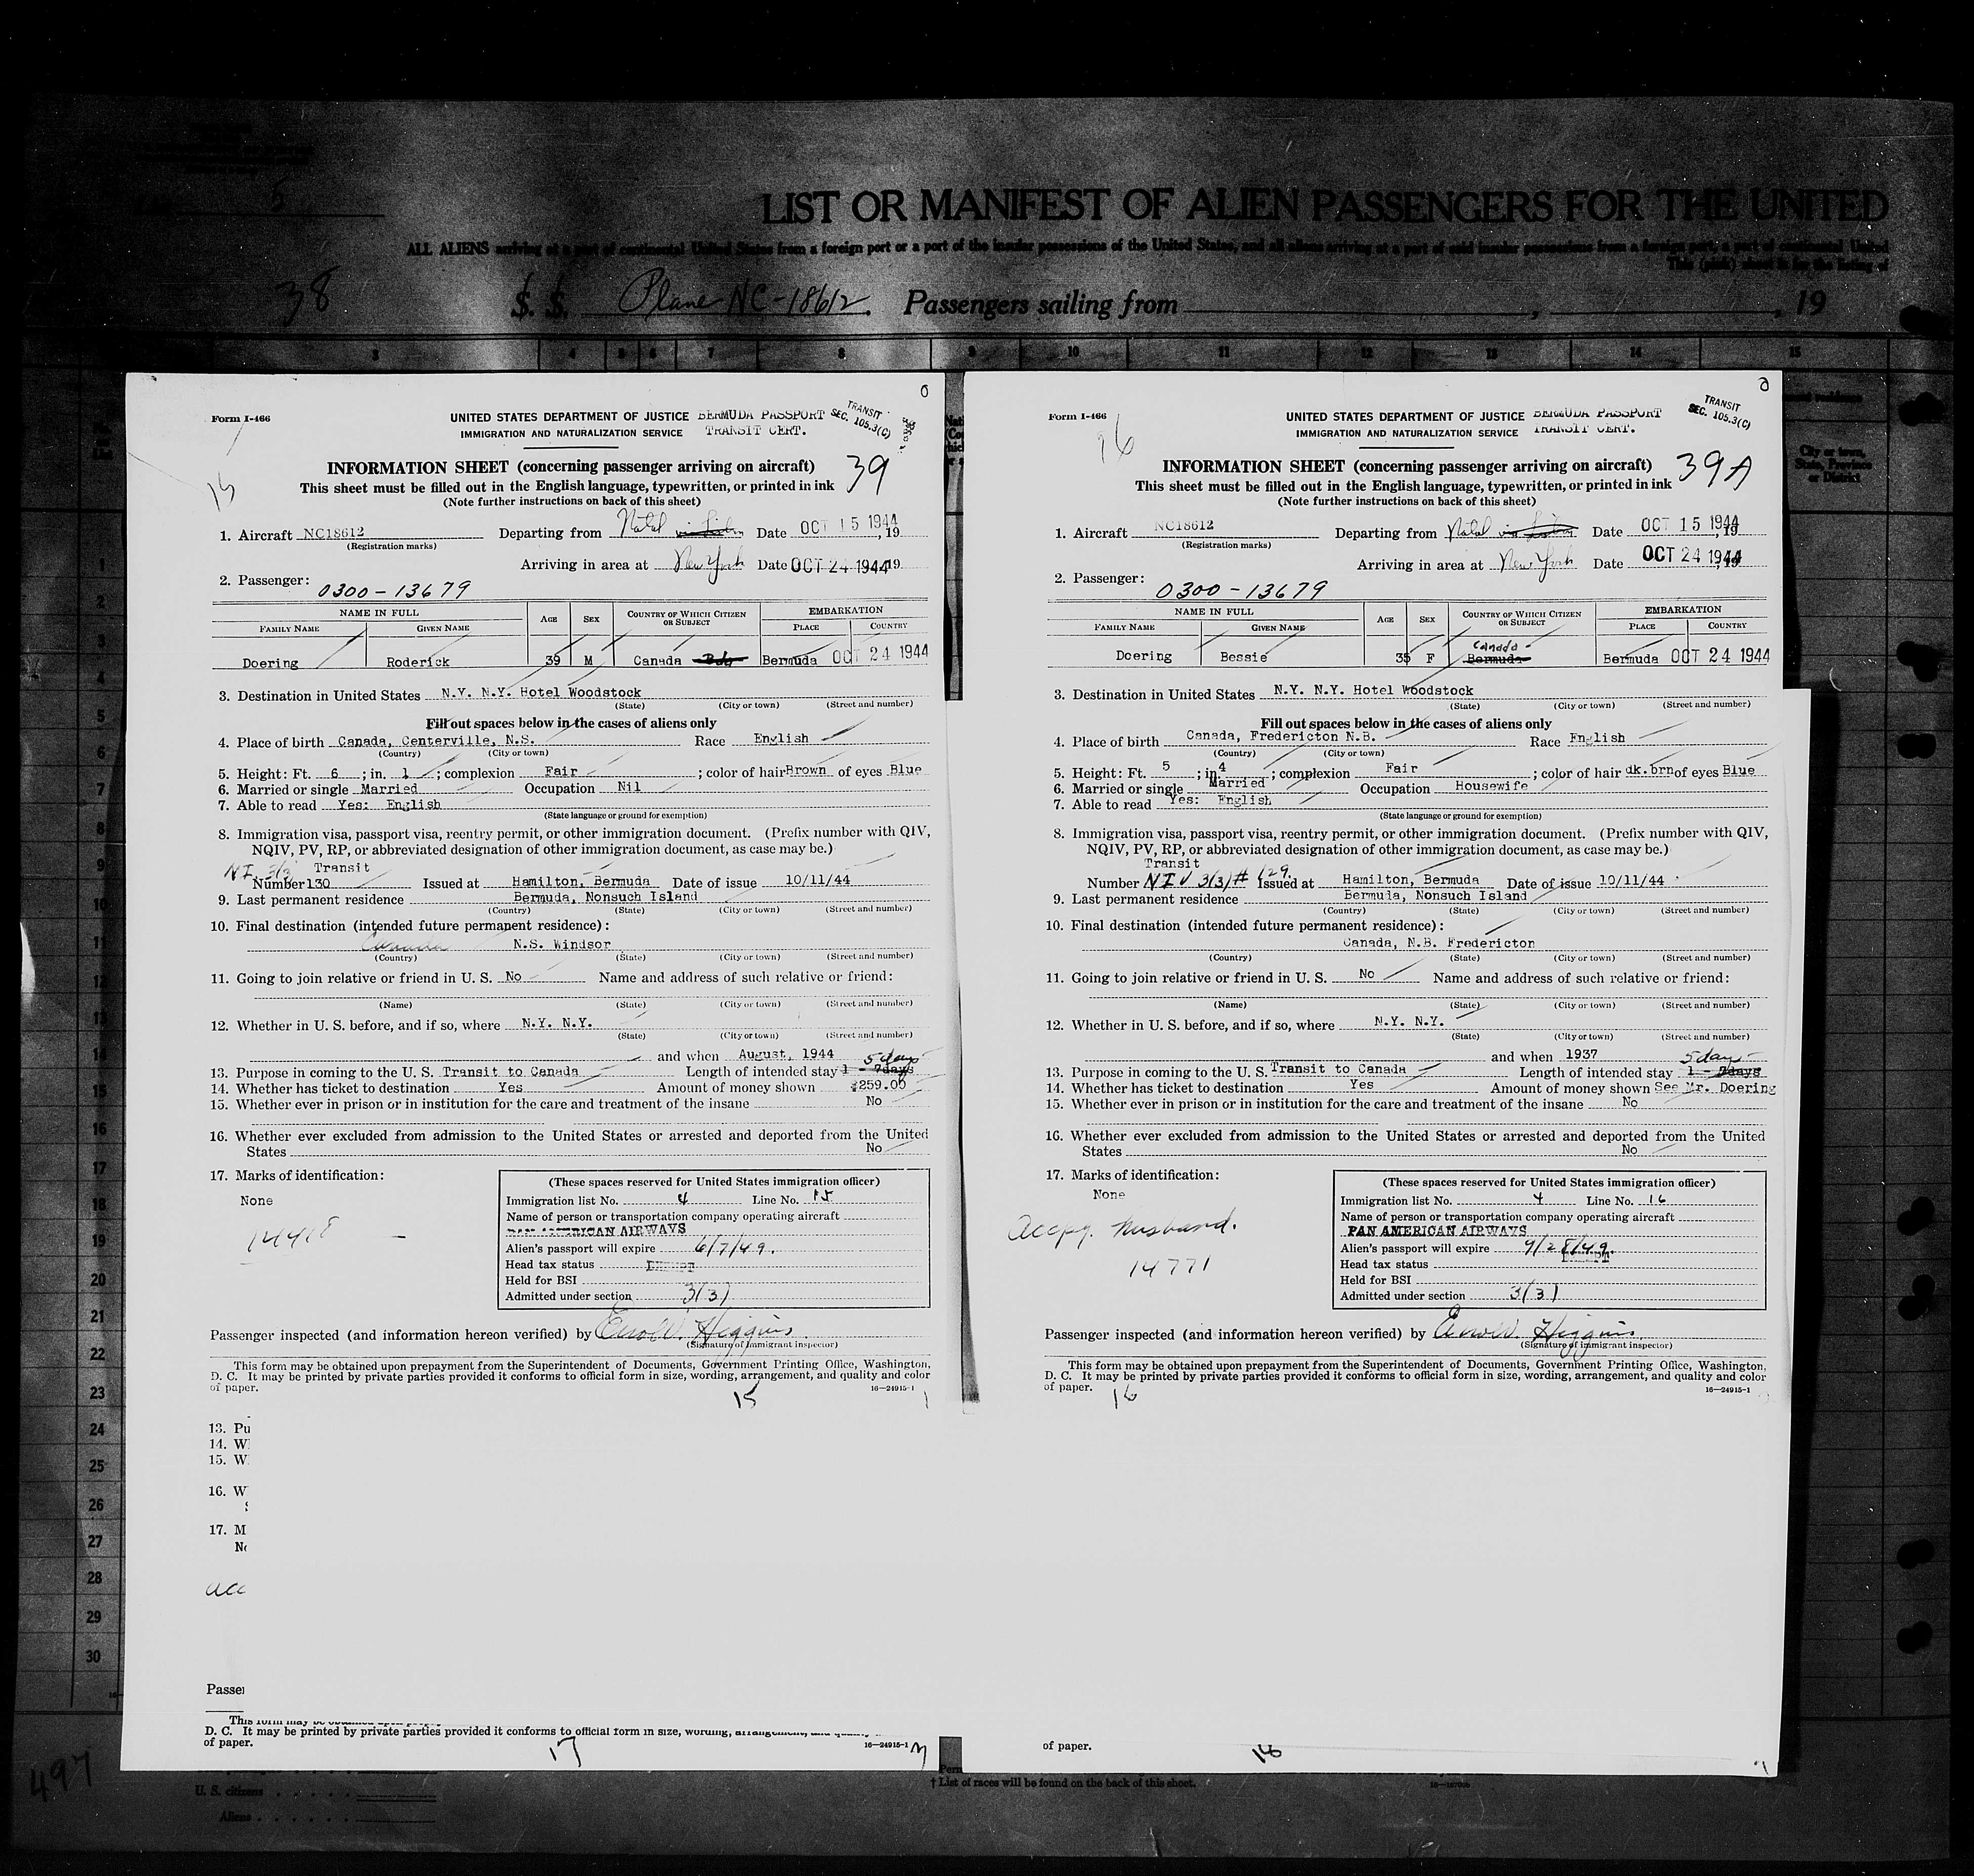 5
LIST OR MANIFEST OF ALIEN PASSENGERS FOR THE UNITED
ALL ALIENS arriving at a port of continental United States from a foreign port or a port of the insular possessions of the United States, and all aliens arriving at a port of said insular possessions from a foreign port, a port of continental United
This (pink) sheet is for the listing of
38 S. S. Plane NC-18612. Passengers sailing from , , 19
3 4 5 6 7 8 9 10 11 12 13 14 15
City or town, State, Province or District
Form I-466
UNITED STATES DEPARTMENT OF JUSTICE BERMUDA PASSPORT
IMMIGRATION AND NATURALIZATION SERVICE TRANSIT CERT.
TRANSIT
SEC. 105.3(C)
INFORMATION SHEET (concerning passenger arriving on aircraft) 39
This sheet must be filled out in the English language, typewritten, or printed in ink
15
(Note further instructions on back of this sheet)
1. Aircraft NC18612 Departing from Natal Date OCT 15 1944, 19
(Registration marks)
Arriving in area at New York Date OCT 24 1944 19
2. Passenger: 0300-13679
NAME IN FULL AGE SEX COUNTRY OF WHICH CITIZEN OR SUBJECT EMBARKATION
FAMILY NAME GIVEN NAME PLACE COUNTRY
Doering Roderick 39 M Canada Bda Bermuda OCT 24 1944
3. Destination in United States N.Y. N.Y. Hotel Woodstock
(State) (City or town) (Street and number)
Fill out spaces below in the cases of aliens only
4. Place of birth Canada, Centerville, N.S. Race English
(Country) (City or town)
5. Height: Ft. 6 ; in. 1 ; complexion Fair ; color of hair Brown of eyes Blue
6. Married or single Married Occupation Nil
7. Able to read Yes: English
(State language or ground for exemption)
8. Immigration visa, passport visa, reentry permit, or other immigration document. (Prefix number with QIV,
NQIV, PV, RP, or abbreviated designation of other immigration document, as case may be.)
Transit
Number 130 Issued at Hamilton, Bermuda Date of issue 10/11/44
9. Last permanent residence Bermuda, Nonsuch Island
(Country) (State) (City or town) (Street and number)
10. Final destination (intended future permanent residence):
Canada N.S. Windsor
(Country) (State) (City or town) (Street and number)
11. Going to join relative or friend in U. S. No Name and address of such relative or friend:
(Name) (State) (City or town) (Street and number)
12. Whether in U. S. before, and if so, where N.Y. N.Y.
(State) (City or town) (Street and number)
and when August, 1944 5 days
13. Purpose in coming to the U. S. Transit to Canada Length of intended stay 1 - 7days
14. Whether has ticket to destination Yes Amount of money shown $259.00
15. Whether ever in prison or in institution for the care and treatment of the insane No
16. Whether ever excluded from admission to the United States or arrested and deported from the United
States No
17. Marks of identification:
None
14418
(These spaces reserved for United States immigration officer)
Immigration list No. 4 Line No. 15
Name of person or transportation company operating aircraft
PAN AMERICAN AIRWAYS
Alien's passport will expire 6/7/49.
Head tax status EXEMPT
Held for BSI
Admitted under section 3(3)
Passenger inspected (and information hereon verified) by Errol W. Higgins
(Signature of immigrant inspector)
This form may be obtained upon prepayment from the Superintendent of Documents, Government Printing Office, Washington,
D. C. It may be printed by private parties provided it conforms to official form in size, wording, arrangement, and quality and color
of paper. 15 16—24915-1
13. Pu
14. W
15. W
16. W
17. M
No
acc
Passe
This form may be obtained upon
D. C. It may be printed by private parties provided it conforms to official form in size, wording, arrangement, and
of paper. 17 16—24915-1
Form I-466
16
UNITED STATES DEPARTMENT OF JUSTICE BERMUDA PASSPORT
IMMIGRATION AND NATURALIZATION SERVICE TRANSIT CERT.
TRANSIT
SEC. 105.3(C)
INFORMATION SHEET (concerning passenger arriving on aircraft) 39A
This sheet must be filled out in the English language, typewritten, or printed in ink
(Note further instructions on back of this sheet)
1. Aircraft NC18612 Departing from Natal Date OCT 15 1944, 19
(Registration marks)
Arriving in area at New York Date OCT 24 1944, 19
2. Passenger: 0300-13679
NAME IN FULL AGE SEX COUNTRY OF WHICH CITIZEN OR SUBJECT EMBARKATION
FAMILY NAME GIVEN NAME PLACE COUNTRY
Canada
Doering Bessie 35 F Bermuda Bermuda OCT 24 1944
3. Destination in United States N.Y. N.Y. Hotel Woodstock
(State) (City or town) (Street and number)
Fill out spaces below in the cases of aliens only
4. Place of birth Canada, Fredericton N.B. Race English
(Country) (City or town)
5. Height: Ft. 5 ; in. 4 ; complexion Fair ; color of hair dk.brn of eyes Blue
6. Married or single Married Occupation Housewife
7. Able to read Yes: English
(State language or ground for exemption)
8. Immigration visa, passport visa, reentry permit, or other immigration document. (Prefix number with QIV,
NQIV, PV, RP, or abbreviated designation of other immigration document, as case may be.)
Transit
Number NIV 3(3)# 129. Issued at Hamilton, Bermuda Date of issue 10/11/44
9. Last permanent residence Bermuda, Nonsuch Island
(Country) (State) (City or town) (Street and number)
10. Final destination (intended future permanent residence):
Canada, N.B. Fredericton
(Country) (State) (City or town) (Street and number)
11. Going to join relative or friend in U. S. No Name and address of such relative or friend:
(Name) (State) (City or town) (Street and number)
12. Whether in U. S. before, and if so, where N.Y. N.Y.
(State) (City or town) (Street and number)
and when 1937 5 days
13. Purpose in coming to the U. S. Transit to Canada Length of intended stay 1 - 7days
14. Whether has ticket to destination Yes Amount of money shown See Mr. Doering
15. Whether ever in prison or in institution for the care and treatment of the insane No
16. Whether ever excluded from admission to the United States or arrested and deported from the United
States No
17. Marks of identification:
None
Accpy. husband.
14771
(These spaces reserved for United States immigration officer)
Immigration list No. 4 Line No. 16
Name of person or transportation company operating aircraft
PAN AMERICAN AIRWAYS
Alien's passport will expire 9/28/49.
Head tax status EXEMPT
Held for BSI
Admitted under section 3(3)
Passenger inspected (and information hereon verified) by Errol W. Higgins
(Signature of immigrant inspector)
This form may be obtained upon prepayment from the Superintendent of Documents, Government Printing Office, Washington,
D. C. It may be printed by private parties provided it conforms to official form in size, wording, arrangement, and quality and color
of paper. 16 16—24915-1
of paper. 18
1
2
3
4
5
6
7
8
9
10
11
12
13
14
15
16
17
18
19
20
21
22
23
24
25
26
27
28
29
30
497
U. S. citizens
Aliens
† List of races will be found on the back of this sheet.